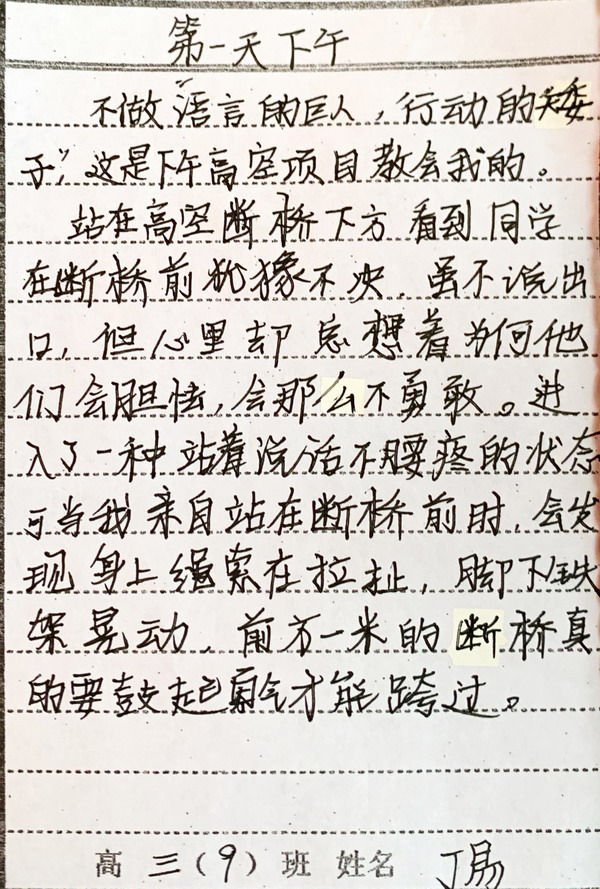 第一天下午
不做“语言的巨人，行动的矮
子”，这是下午高空项目教会我的。
站在高空断桥下方看到同学
在断桥前犹豫不决，虽不说出
口，但心里却总想着为何他
们会胆怯，会那么不勇敢。进
入了一种站着说话不腰疼的状态
可当我亲自站在断桥前时，会发
现身上绳索在拉扯，脚下铁
架晃动，前方一米的断桥真
的要鼓起勇气才能跨过。
高三（9）班 姓名 丁易